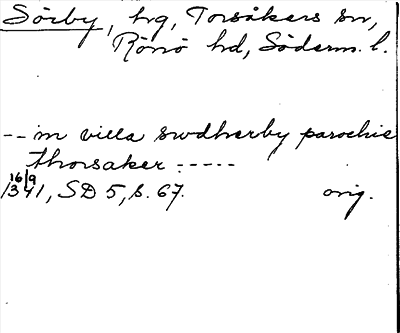 Sörby, hg, Torsåkers sn,
Rönö hd, Söderm. l.
-- in villa swdherby parochie
thorsaker -----
16/9
1341, SD 5, s. 67. orig.